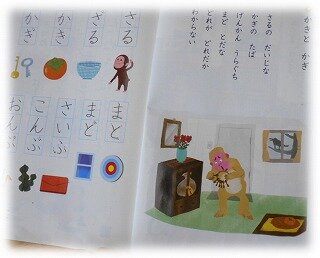 かきと かぎ
さるの だいじな
かぎの たば
げんかん うらぐち
まど とだな
どれが どれだか
わからない
さる
ざる
かき
かぎ
まと
まど
さいふ
こんぶ
おんぶ